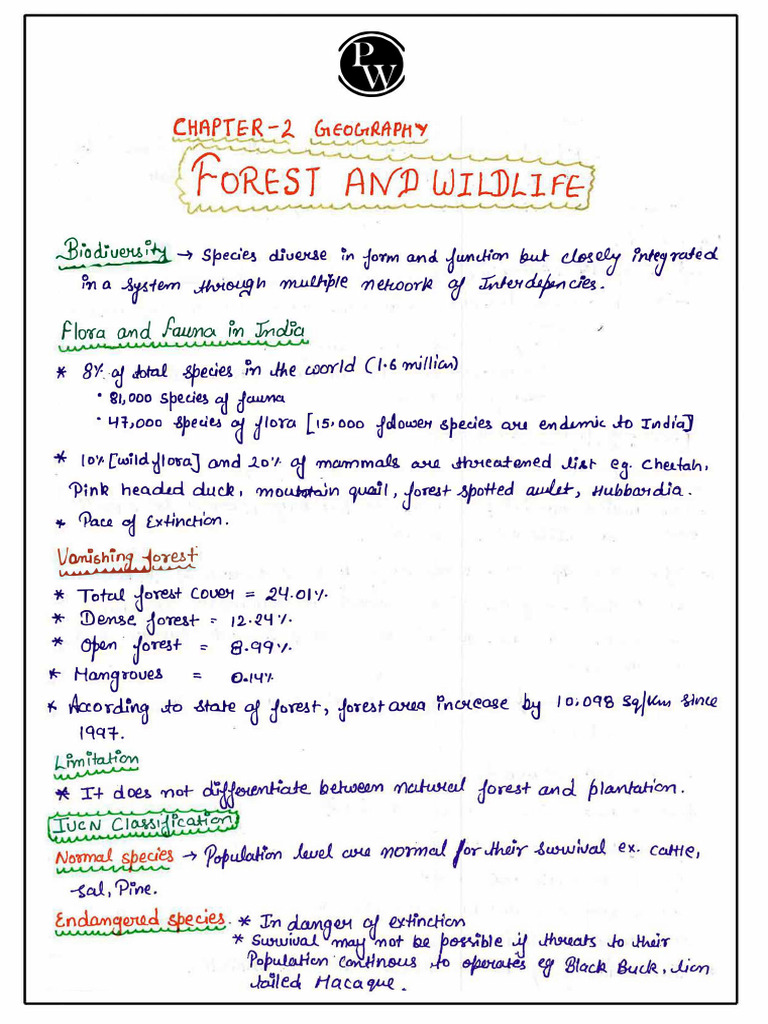 PW
CHAPTER-2 GEOGRAPHY
FOREST AND WILDLIFE
Biodiversity → Species diverse in form and function but closely integrated
in a system through multiple network of Interdepencies.
Flora and fauna in India
* 8% of total species in the world (1.6 million)
• 81,000 species of fauna
• 47,000 species of flora [15,000 flower species are endemic to India]
* 10% [wild flora] and 20% of mammals are threatened list eg. Cheetah,
Pink headed duck, mountain quail, forest spotted owlet, Hubbardia.
* Pace of Extinction.
Vanishing forest
* Total forest cover = 24.01%.
* Dense forest = 12.24%.
* Open forest = 8.99%.
* Mangroves = 0.14%
* According to state of forest, forest area increase by 10,098 sq/km since
1997.
Limitation
* It does not differentiate between natural forest and plantation.
IUCN Classification
Normal species → Population level are normal for their survival ex. cattle,
sal, Pine.
Endangered species. * In danger of extinction
* Survival may not be possible if threats to their
Population continous to operates eg Black Buck, lion
tailed Macaque.